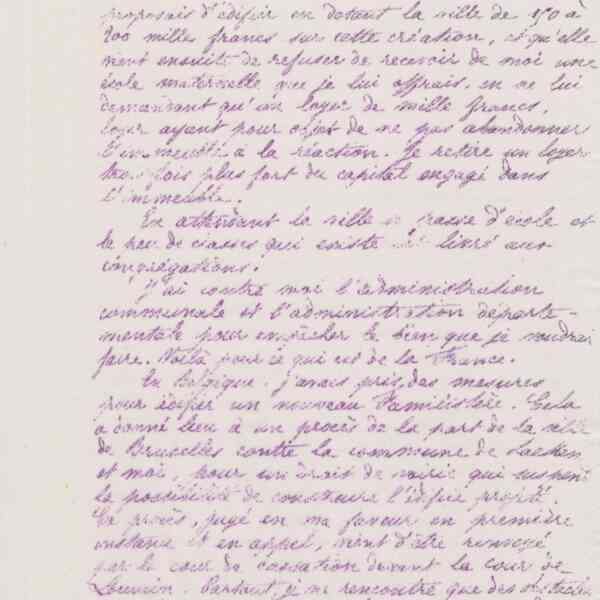 proposais d'édifier en dotant la ville de 150 à
200 mille francs sur cette création, et qu'elle
vient ensuite de refuser de recevoir de moi une
école maternelle que je lui offrais, en ne lui
demandant qu'un loyer de mille francs,
loyer ayant pour objet de ne pas abandonner
l'immeuble à la réaction. Je retire un loyer
trois fois plus fort du capital engagé dans
l'immeuble.
En attendant la ville se passe d'école et
le peu de classes qui existe est livré aux
congrégations.
J'ai contre moi l'administration
communale et l'administration départe-
mentale pour empêcher le bien que je voudrais
faire. Voilà pour ce qui est de la France.
En Belgique, j'avais pris des mesures
pour édifier un nouveau Familistère. Cela
a donné lieu à un procès de la part de la ville
de Bruxelles contre la commune de Laeken
et moi, pour un droit de voirie qui suspend
la possibilité de construire l'édifice projeté.
Ce procès, jugé en ma faveur en première
instance et en appel, vient d'être renvoyé
par la cour de cassation devant la cour de
Louvain. Partout, je ne rencontre que des obstacles